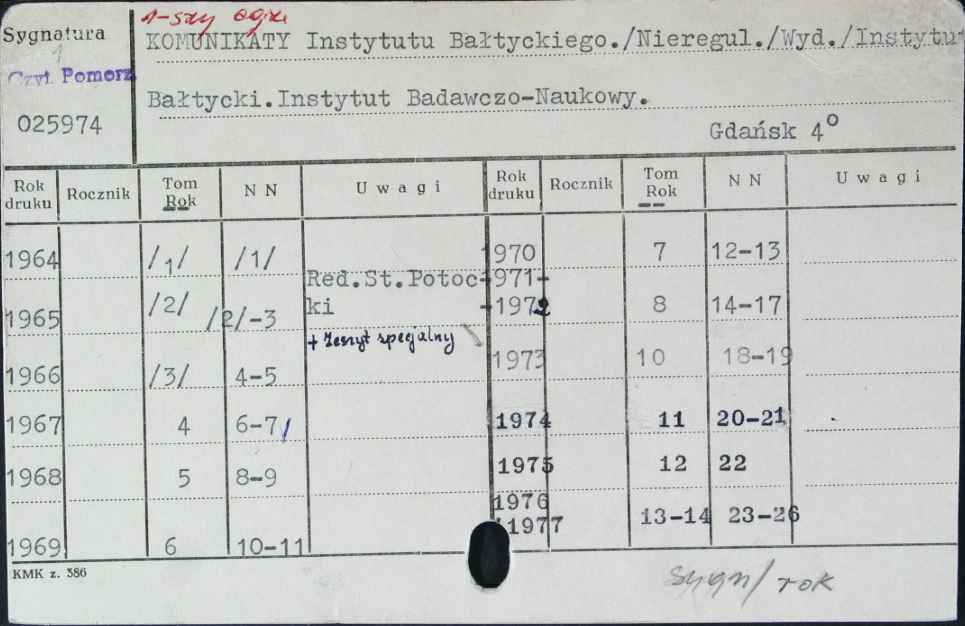 1-szy egz.
Sygnatura
KOMUNIKATY Instytutu Bałtyckiego./Nieregul./Wyd./Instytut
1
Czyt. Pomorz
Bałtycki.Instytut Badawczo-Naukowy.
025974
Gdańsk 4º
Rok druku Rocznik Tom Rok N N Uwagi Rok druku Rocznik Tom Rok N N Uwagi
1964 /1/ /1/ 1970 7 12-13
Red.St.Potoc- 1971-
1965 /2/ /2/-3 ki -1972 8 14-17
+ Zeszyt specjalny
1966 /3/ 4-5 1973 10 18-19
1967 4 6-7/ 1974 11 20-21
1968 5 8-9 1975 12 22
1976
/1977 13-14 23-26
1969 6 10-11
KMK z. 386
sygn/ rok